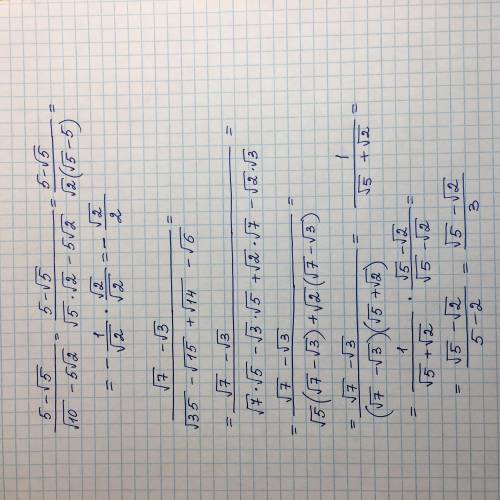 (5-√5)/(√10 - 5√2) = (5-√5)/(√5·√2 - 5√2) = (5-√5)/(√2(√5-5)) =
= - 1/√2 · √2/√2 = - √2/2
(√7 - √3)/(√35 - √15 + √14 - √6) =
= (√7 - √3)/(√7·√5 - √3·√5 + √2·√7 - √2·√3) =
= (√7 - √3)/(√5(√7-√3) + √2(√7-√3)) =
= (√7 - √3)/((√7-√3)(√5+√2)) = 1/(√5+√2) =
= 1/(√5+√2) · (√5-√2)/(√5-√2) =
= (√5-√2)/(5-2) = (√5-√2)/3